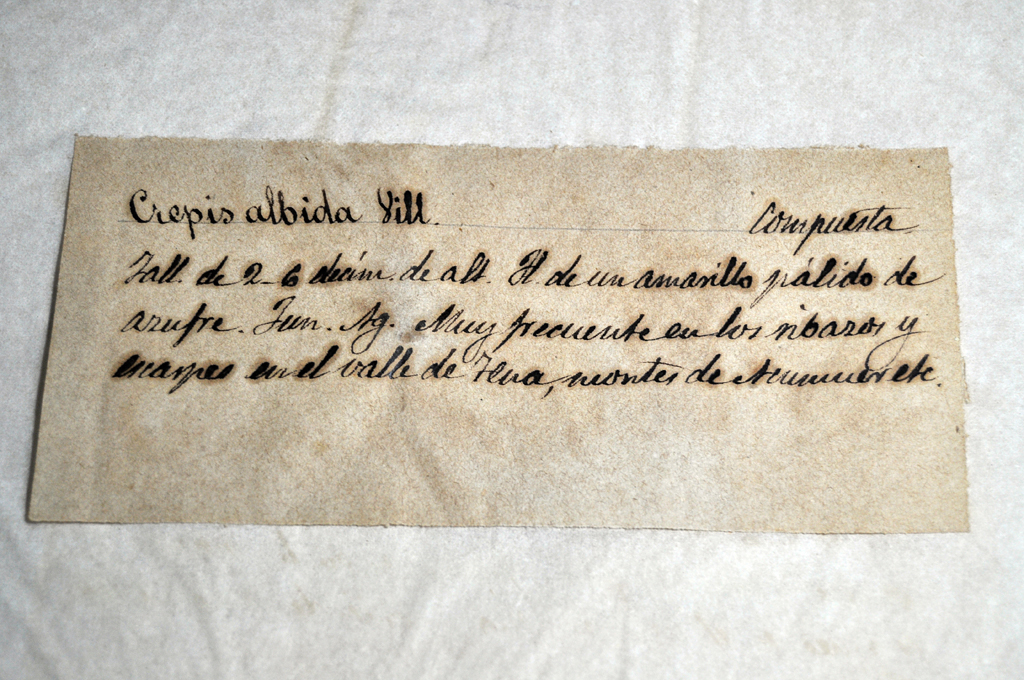 Crepis albida Vill. Compuesta
Tall. de 2-6 decím. de alt. Fl. de un amarillo pálido de
azufre. Jun. Ag. Muy frecuente en los ribazos y
escarpes en el valle de Tena, montes de Acumuer etc.